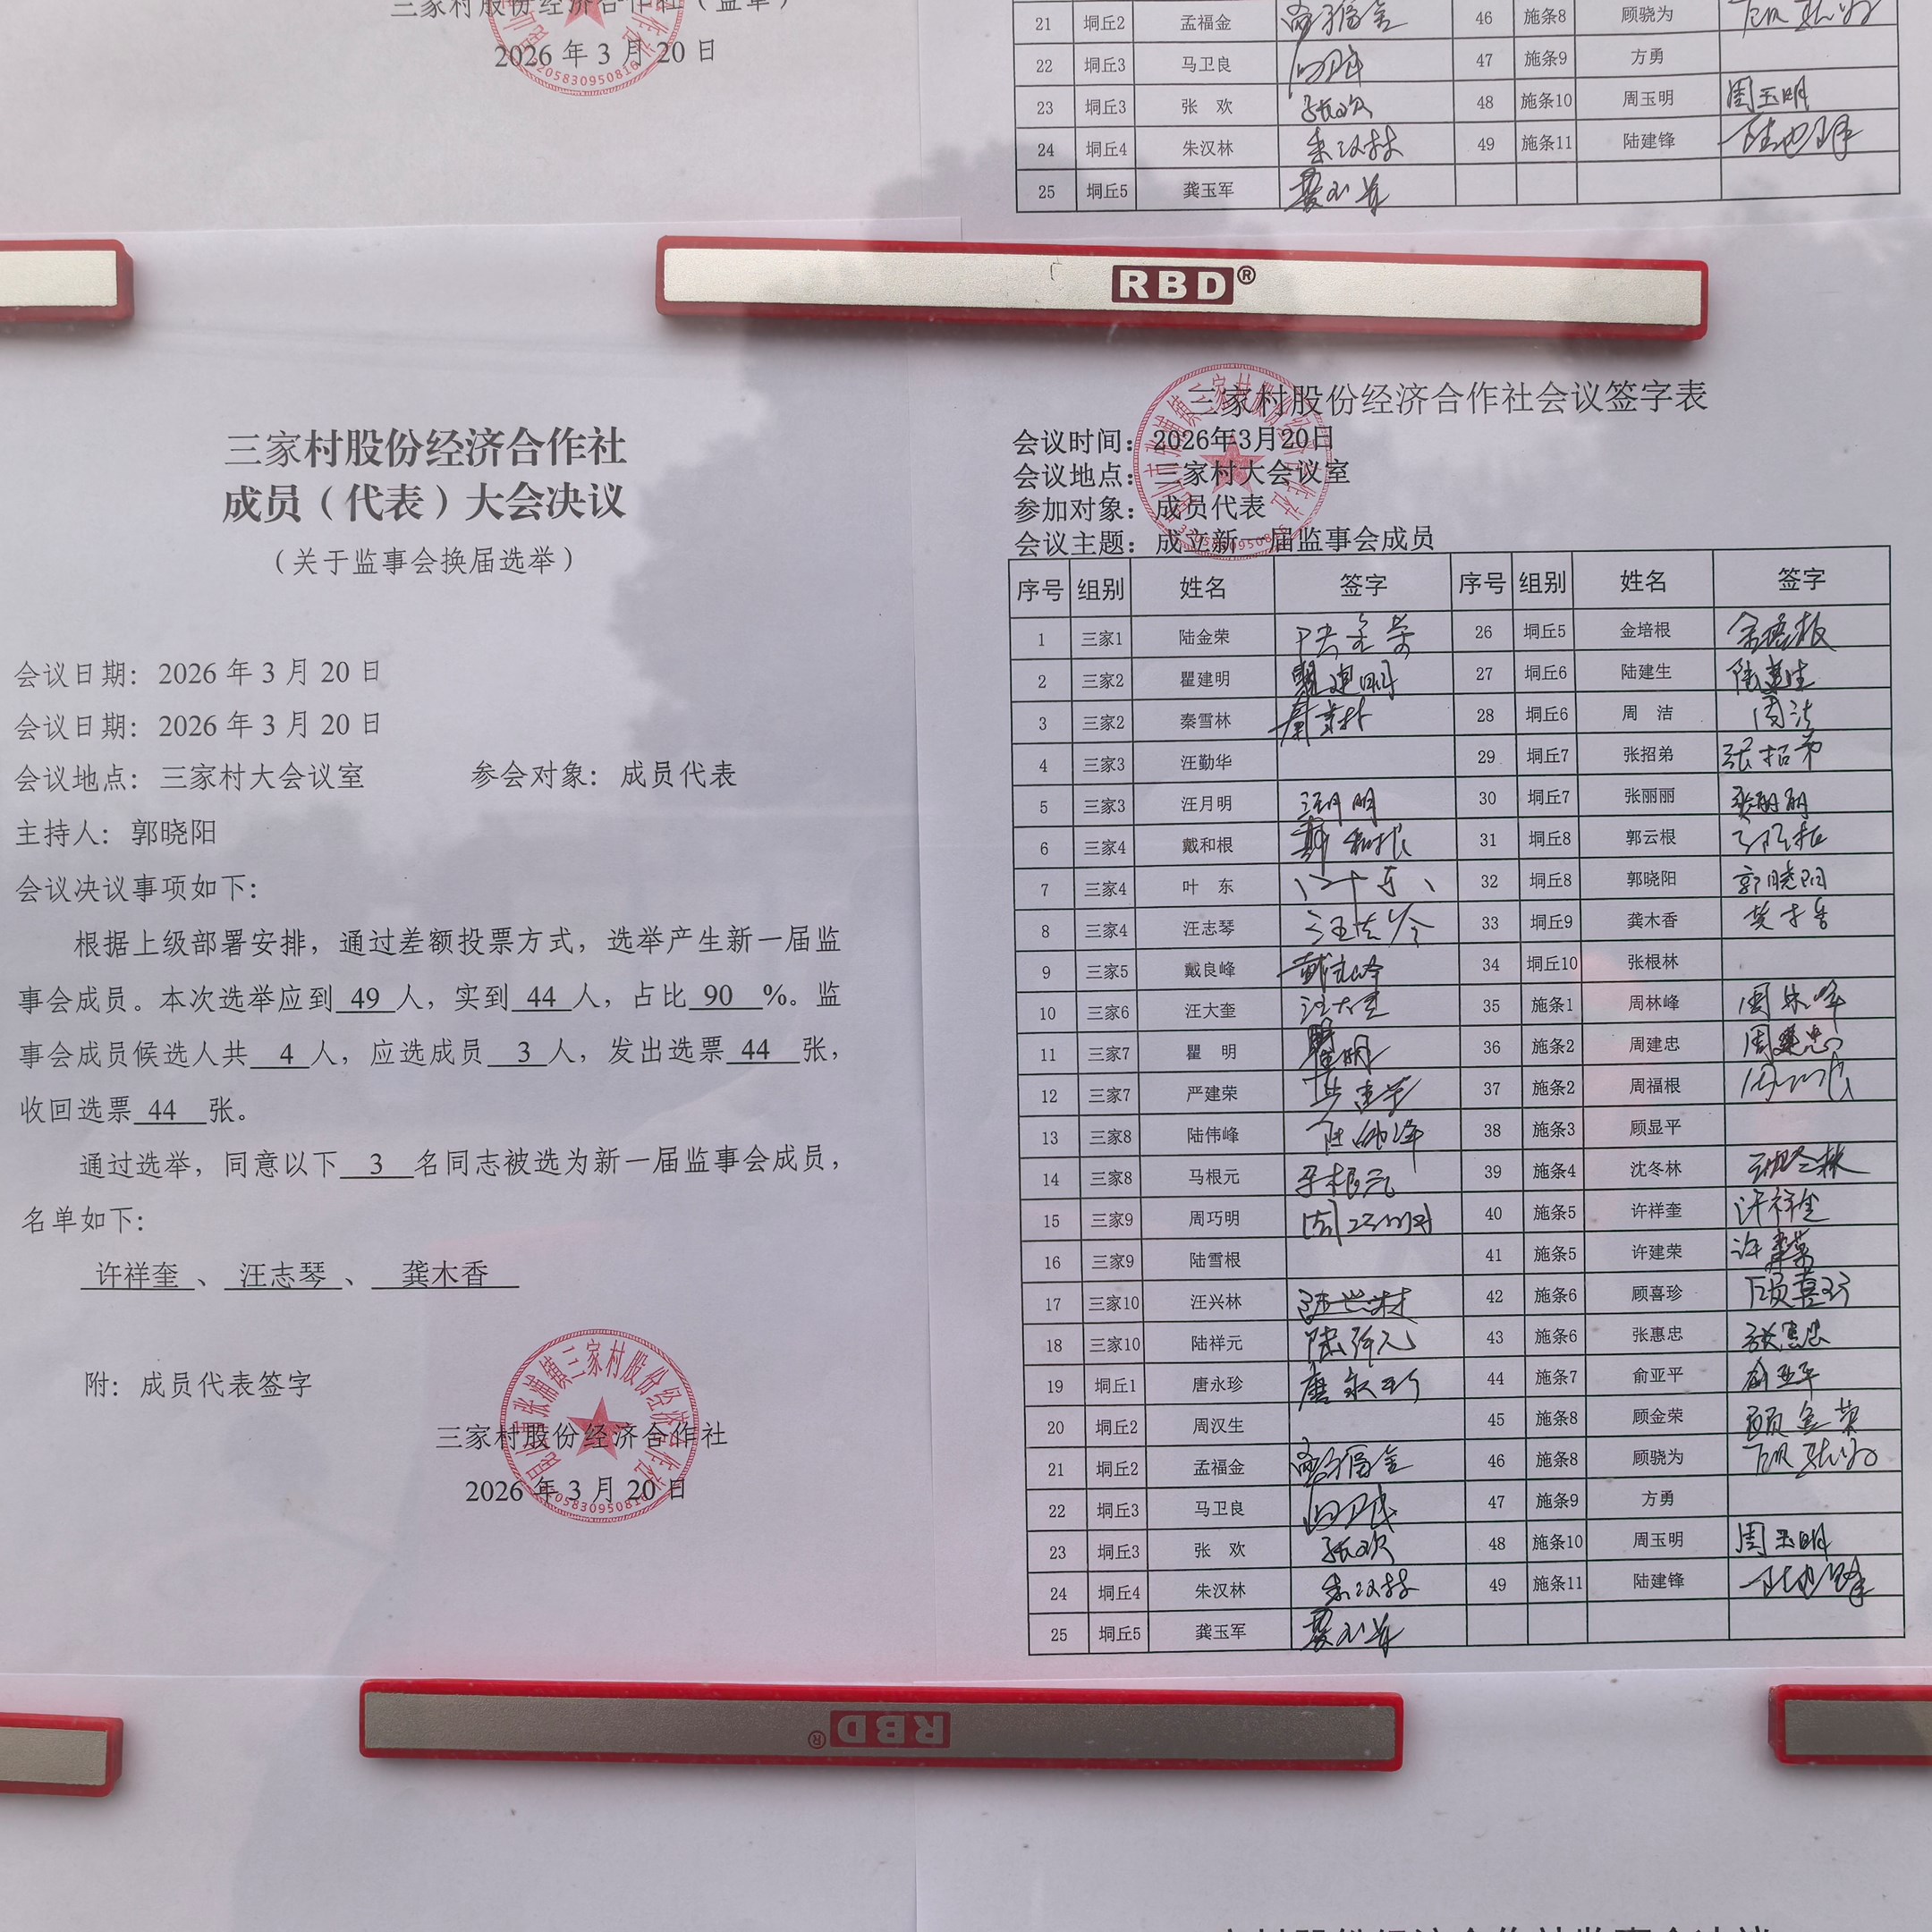 三家村股份经济合作社（盖章）
2026 年 3 月 20 日
21 垌丘2 孟福金 46 施条8 顾骁为
22 垌丘3 马卫良 47 施条9 方勇
23 垌丘3 张 欢 张欢 48 施条10 周玉明 周玉明
24 垌丘4 朱汉林 朱汉林 49 施条11 陆建锋
25 垌丘5 龚玉军
RBD®
三家村股份经济合作社
成员（代表）大会决议
（关于监事会换届选举）
会议日期：2026 年 3 月 20 日
会议日期：2026 年 3 月 20 日
会议地点：三家村大会议室 参会对象：成员代表
主持人：郭晓阳
会议决议事项如下：
根据上级部署安排，通过差额投票方式，选举产生新一届监
事会成员。本次选举应到 49 人，实到 44 人，占比 90 %。监
事会成员候选人共 4 人，应选成员 3 人，发出选票 44 张，
收回选票 44 张。
通过选举，同意以下 3 名同志被选为新一届监事会成员，
名单如下：
许祥奎 、 汪志琴 、 龚木香
附：成员代表签字
三家村股份经济合作社
2026 年 3 月 20 日
三家村股份经济合作社会议签字表
会议时间：2026年3月20日
会议地点：三家村大会议室
参加对象：成员代表
会议主题：成立新一届监事会成员
序号 组别 姓名 签字 序号 组别 姓名 签字
1 三家1 陆金荣 陆金荣 26 垌丘5 金培根 金培根
2 三家2 瞿建明 瞿建明 27 垌丘6 陆建生 陆建生
3 三家2 秦雪林 秦雪林 28 垌丘6 周 洁 周洁
4 三家3 汪勤华 29 垌丘7 张招弟 张招弟
5 三家3 汪月明 汪月明 30 垌丘7 张丽丽 张丽丽
6 三家4 戴和根 戴和根 31 垌丘8 郭云根
7 三家4 叶 东 叶东 32 垌丘8 郭晓阳 郭晓阳
8 三家4 汪志琴 汪志琴 33 垌丘9 龚木香
9 三家5 戴良峰 34 垌丘10 张根林
10 三家6 汪大奎 汪大奎 35 施条1 周林峰 周林峰
11 三家7 瞿 明 瞿明 36 施条2 周建忠 周建忠
12 三家7 严建荣 严建荣 37 施条2 周福根
13 三家8 陆伟峰 陆伟峰 38 施条3 顾显平
14 三家8 马根元 马根元 39 施条4 沈冬林
15 三家9 周巧明 周巧明 40 施条5 许祥奎 许祥奎
16 三家9 陆雪根 41 施条5 许建荣 许建荣
17 三家10 汪兴林 42 施条6 顾喜珍 顾喜珍
18 三家10 陆祥元 陆祥元 43 施条6 张惠忠 张惠忠
19 垌丘1 唐永珍 唐永珍 44 施条7 俞亚平 俞亚平
20 垌丘2 周汉生 45 施条8 顾金荣 顾金荣
21 垌丘2 孟福金 46 施条8 顾骁为
22 垌丘3 马卫良 47 施条9 方勇
23 垌丘3 张 欢 张欢 48 施条10 周玉明 周玉明
24 垌丘4 朱汉林 朱汉林 49 施条11 陆建锋
25 垌丘5 龚玉军
RBD®